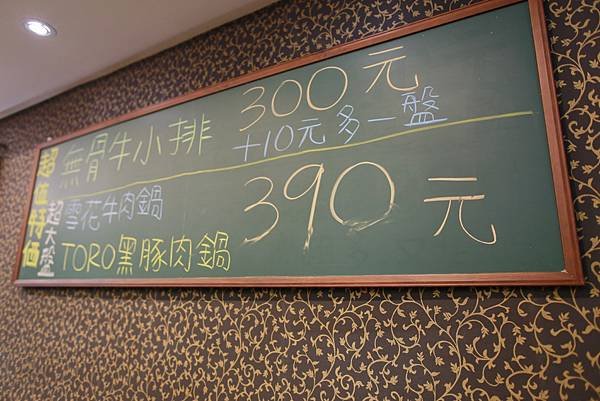 超值特価
無骨牛小排 300元
+10元多一盤
超大盤
雪花牛肉鍋
TORO黑豚肉鍋
390元